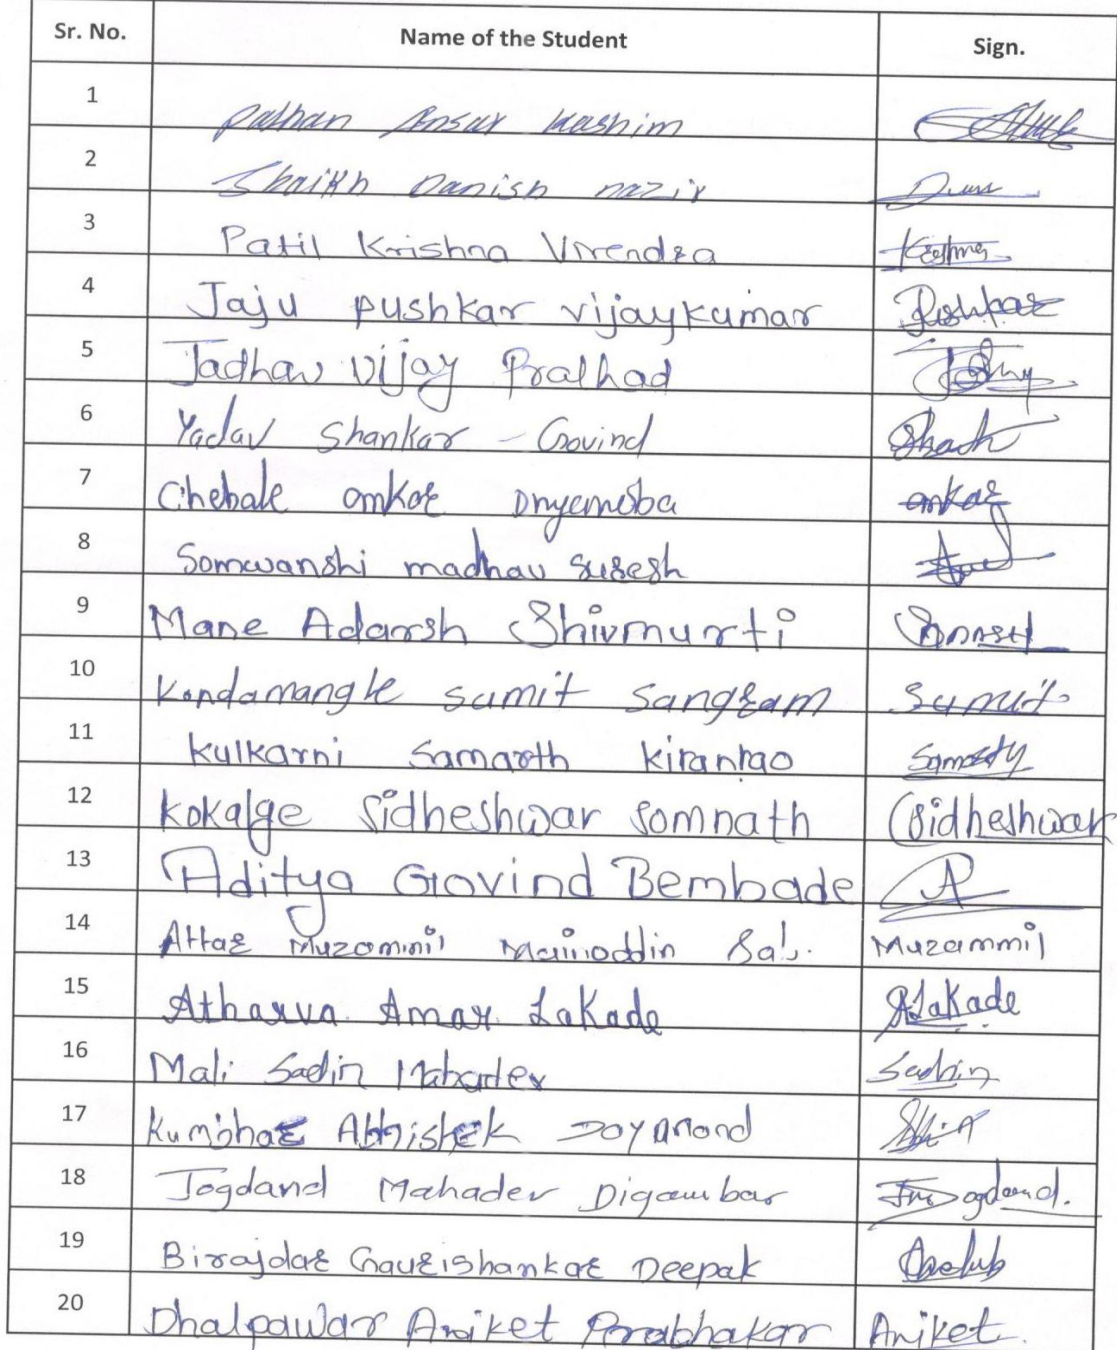 Sr. No. Name of the Student Sign.
1 Pathan Ansar Kashim
2 Shaikh Danish nazir
3 Patil Krishna Virendra Krishna
4 Jaju pushkar vijaykumar Pushkar
5 Jadhav vijay Pralhad
6 Yadav Shankar Govind
7 Chebale omkar Dnyanoba omkar
8 Somwanshi madhav Suresh
9 Mane Adarsh Shivmurti
10 Kondamangle sumit sangram Sumit
11 Kulkarni Samarth kiranrao
12 kokalge Sidheshwar Somnath Sidheshwar
13 Aditya Govind Bembade
14 Attar Muzammil Mainoddin Muzammil
15 Atharva Amar Lakade ALakade
16 Mali Sachin Mahadev Sachin
17 Kumbhar Abhishek Dayanand
18 Jogdand Mahadev Digambar Jogdand.
19 Birajdar Gaurishankar Deepak
20 Dhalpawar Aniket Prabhakar Aniket.